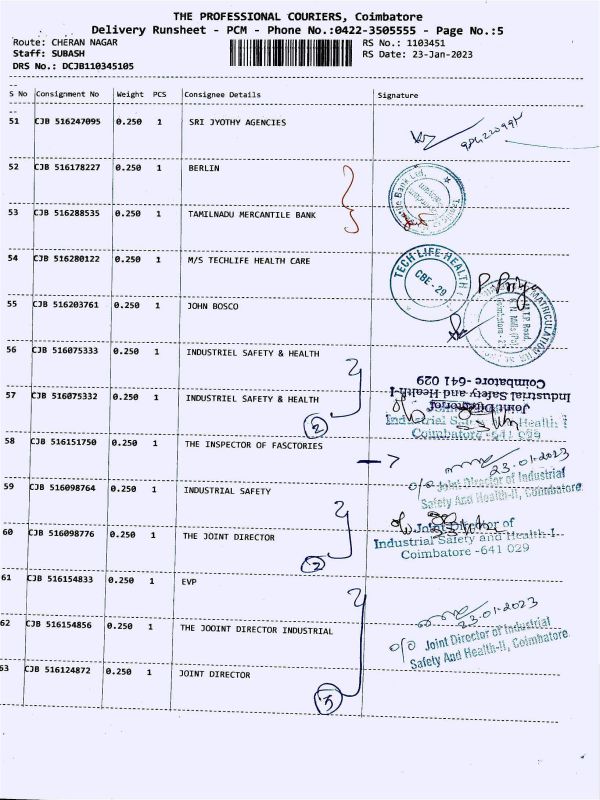 THE PROFESSIONAL COURIERS, Coimbatore
Delivery Runsheet - PCM - Phone No.:0422-3505555 - Page No.:5
Route: CHERAN NAGAR RS No.: 1103451
Staff: SUBASH RS Date: 23-Jan-2023
DRS No.: DCJB110345105
S No Consignment No Weight PCS Consignee Details Signature
51 CJB 516247095 0.250 1 SRI JYOTHY AGENCIES
52 CJB 516178227 0.250 1 BERLIN
53 CJB 516288535 0.250 1 TAMILNADU MERCANTILE BANK
54 CJB 516280122 0.250 1 M/S TECHLIFE HEALTH CARE
TECH-LIFE-HEALTH
CBE - 29
P. Priya
55 CJB 516203761 0.250 1 JOHN BOSCO
56 CJB 516075333 0.250 1 INDUSTRIEL SAFETY & HEALTH
Coimbatore -641 029
Industrial Safety and Health-I
57 CJB 516075332 0.250 1 INDUSTRIEL SAFETY & HEALTH
2
Coimbatore -641 029
58 CJB 516151750 0.250 1 THE INSPECTOR OF FASCTORIES
23.01.2023
59 CJB 516098764 0.250 1 INDUSTRIAL SAFETY
o/o Joint Director of Industrial
Safety And Health-II, Coimbatore.
60 CJB 516098776 0.250 1 THE JOINT DIRECTOR
2
Joint Director of
Industrial Safety and Health-I
Coimbatore -641 029
61 CJB 516154833 0.250 1 EVP
23.01.2023
62 CJB 516154856 0.250 1 THE JOOINT DIRECTOR INDUSTRIAL
o/o Joint Director of Industrial
Safety And Health-II, Coimbatore.
63 CJB 516124872 0.250 1 JOINT DIRECTOR
3